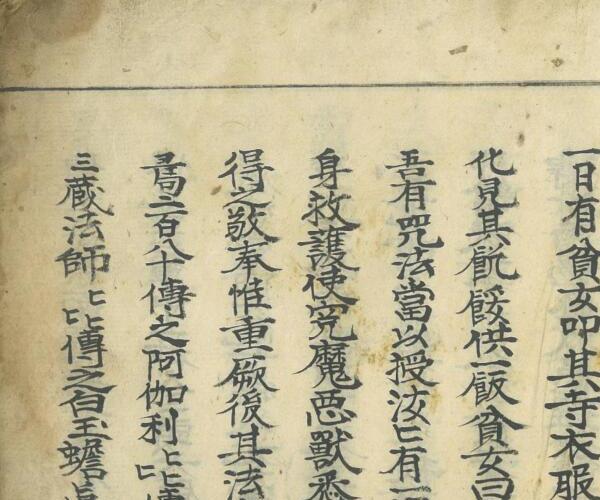 一日有貧女叩其寺衣服
化見其飢餒供一飯貧女曰
吾有咒法當以授汝匕有一
身救護使冤魔惡獸悉
得之敬奉惟重一厥後其法
寿二百八十傳之阿伽利匕匕傳
三藏法師匕匕匕傳之白玉蟾